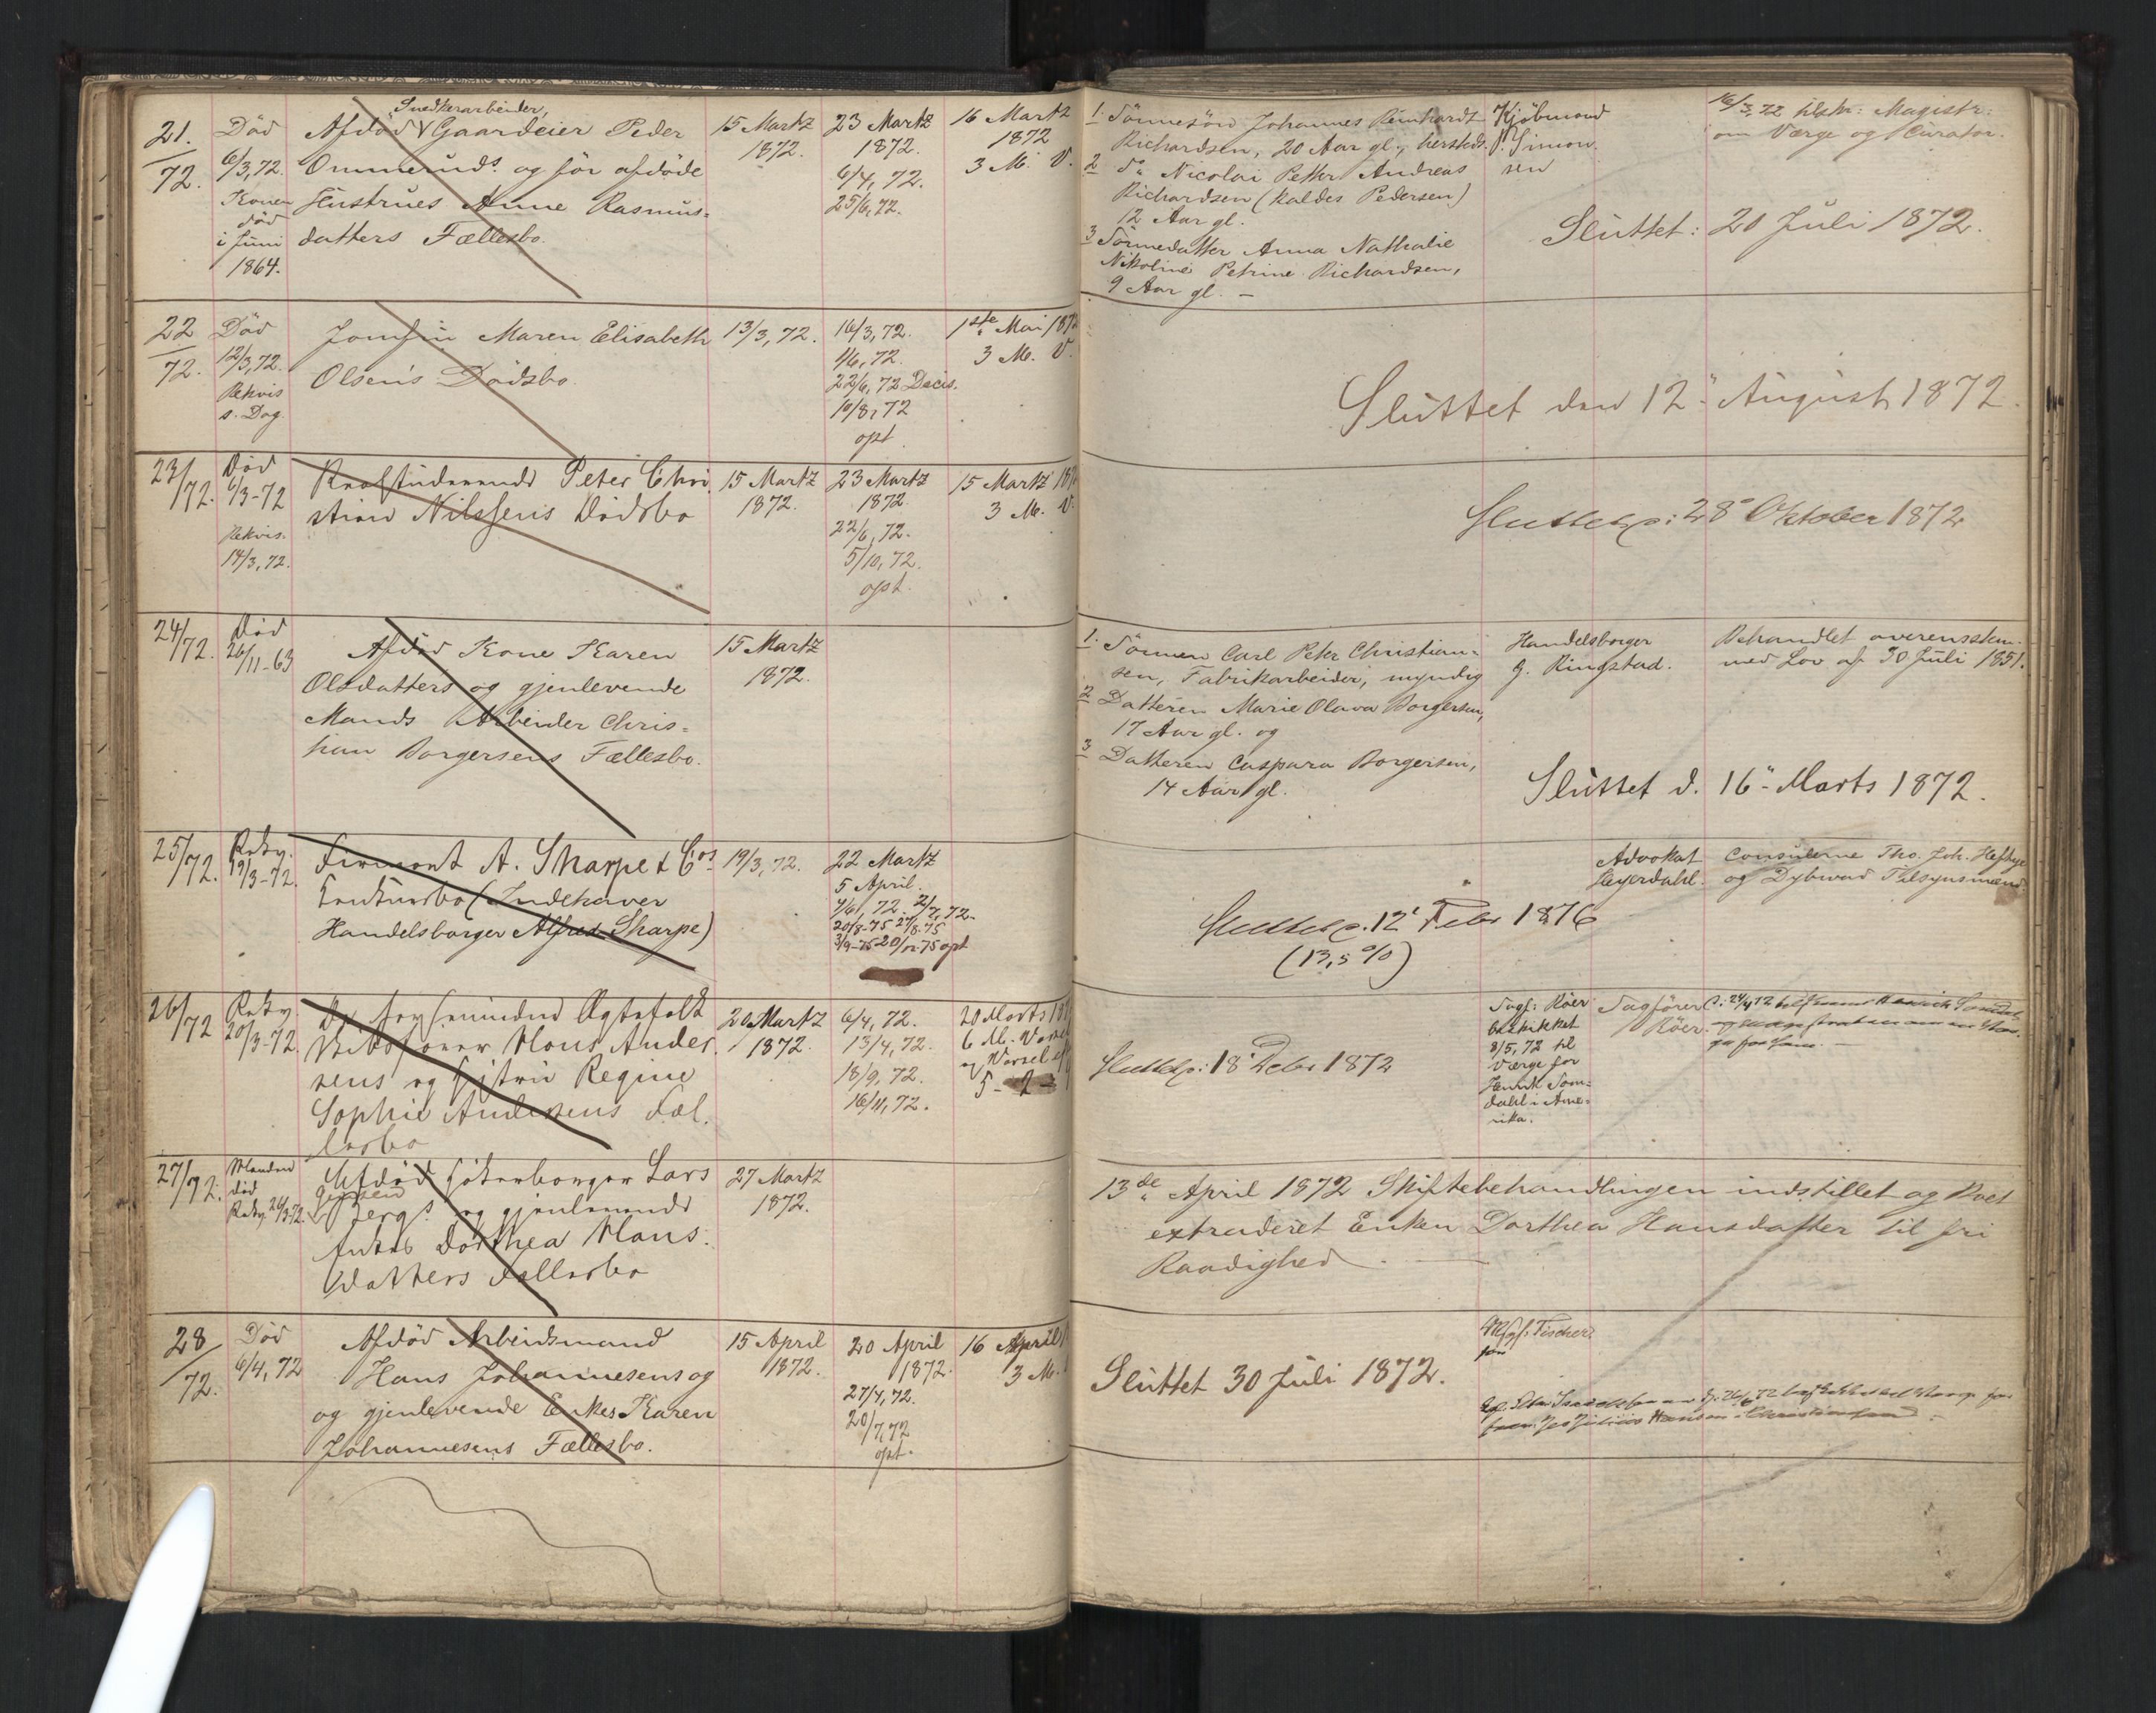 21.
72.
Död
6/3, 72.
Konen
död
i Juni
1864.
Snedkerarbeider,
Afdöd Gaardeier Peder
Ommeruds og för afdöde
Hustrues Anne Rasmus-
datters Fællesbo.
15 Martz
1872.
23 Martz
1872.
6/4, 72.
25/6, 72.
16 Martz
1872
3 M. V.
1. Sönnesön Johannes Reinhardt
Richardsen, 20 Aar gl.,
2 do Nicolai Petter Andreas
Richardsen (kaldes Pedersen)
12 Aar gl.
3 Sönnedatter Anna Nathalie
Nikoline Petrine Richardsen,
9 Aar gl. –
Kjöbmand
P. Simon
sen
16/3, 72 Magistr:
om Værge og Curator.
Sluttet: 20 Juli 1872.
22
72.
Död
12/3, 72.
Rekvis
s. Dag.
Jomfru Maren Elisabeth
Olsens Dödsbo.
13/3, 72.
16/3, 72.
1/6, 72.
22/6, 72 Decis.
10/8, 72
opt.
1ste Mai 1872
3 M. V.
Sluttet den 12" August 1872.
23/72.
Död
6/3-72
Rekvis.
14/3, 72.
Realstuderende Peter Chri
stian Nilssens Dödsbo
15 Martz
1872.
23 Martz
1872.
22/6, 72.
5/10, 72.
opt.
15 Martz 187
3 M. V.
28 Oktober 1872
24/72.
Död
26/11-63
Afdöd Kone Karen
Olsdatters og gjenlevende
Mands Arbeider Chris-
tian Borgersens Fællesbo.
15 Martz
1872.
1. Sönnen Carl Peter Christian-
sen, Fabrikarbeider, myndig
2 Datteren Marie Olava Borgersen,
17 Aar gl. og
3 Datteren Caspara Borgersen,
14 Aar gl.
Handelsborger
G. Ringstad.
Behandlet overensstem.
med Lov af 30 Juli 1851.
Sluttet d. 16" Marts 1872.
25/72.
Rekv.
19/3-72.
Firmaet A. Sharpe & Cos
(Indehaver
Handelsborger Alfred Sharpe)
19/3, 72.
22 Martz
5 April.
4/6, 72. 2/7, 72.
20/8-75 27/8-75
3/9-75 20/12-75 opt
Advokat
Heyerdahl.
Consulerne Tho. Joh. Heftye
og Dybwad Tilsynsmænd
12 Febr 1876
(13,5 %)
26/72
Rekv.
20/3-72.
Ægtefolk
Hans Ander
sens og Hustru Regine
Sophie Andersens Fæl.
lesbo
20 Martz
1872.
6/4, 72.
13/4, 72.
18/9, 72.
16/11, 72.
20 Marts 187
6 M. Varsel
og Varsel
18 Debr 1872
Sagf: Röer
beskikket
8/5, 72 til
Værge for
Henrik Som-
dahl i Ame-
rika.
Sagförer
Röer.
27/72.
Manden
död
Rekv. 26/3-72.
Afdöd Hökerborger Lars
Jensen
Bergs og gjenlevende
Enkes Dorthea Hans.
datters Fællesbo
27 Martz
1872.
13de April 1872 Skiftebehandlingen indstillet og Boet
extraderet Enken Dorthea Hansdatter til fri
Raadighed.
28
72.
Död
6/4, 72
Afdöd Arbeidsmand
Hans Johannesens og
og gjenlevende Enkes Karen
Johannesens Fællesbo.
15 April
1872.
20 April
1872.
27/4, 72.
20/7, 72
opt.
16 April
3 M.
Sluttet 30 Juli 1872.
Fischer
for